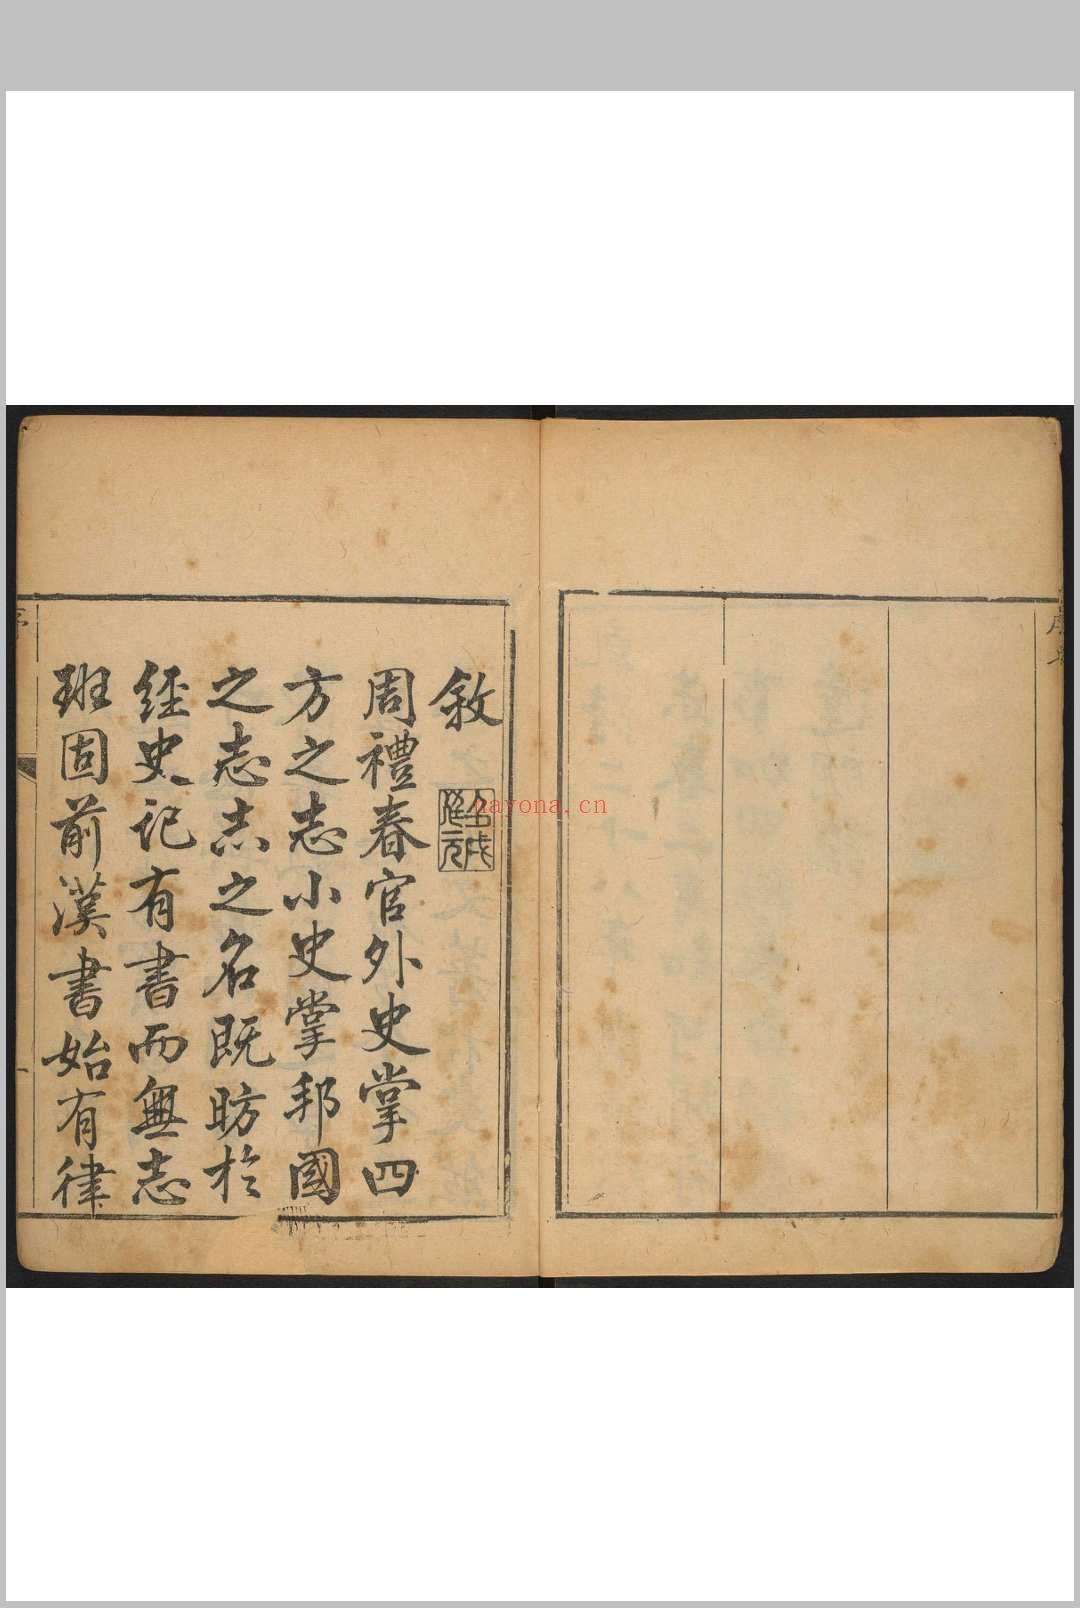 敘
周禮春官外史掌四
方之志小史掌邦國
之志志之名既昉於
經史記有書而無志
班固前漢書始有律
nayona.cn